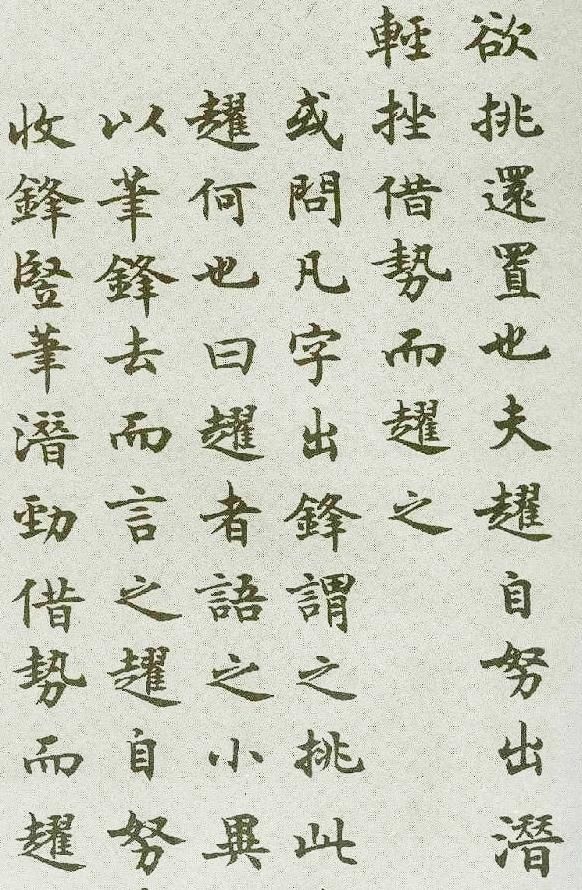 欲挑還置也夫趯自努出潛
輕挫借勢而趯之
或問凡字出鋒謂之挑此
趯何也曰趯者語之小異
以筆鋒去而言之趯自努
收鋒竪筆潛勁借勢而趯